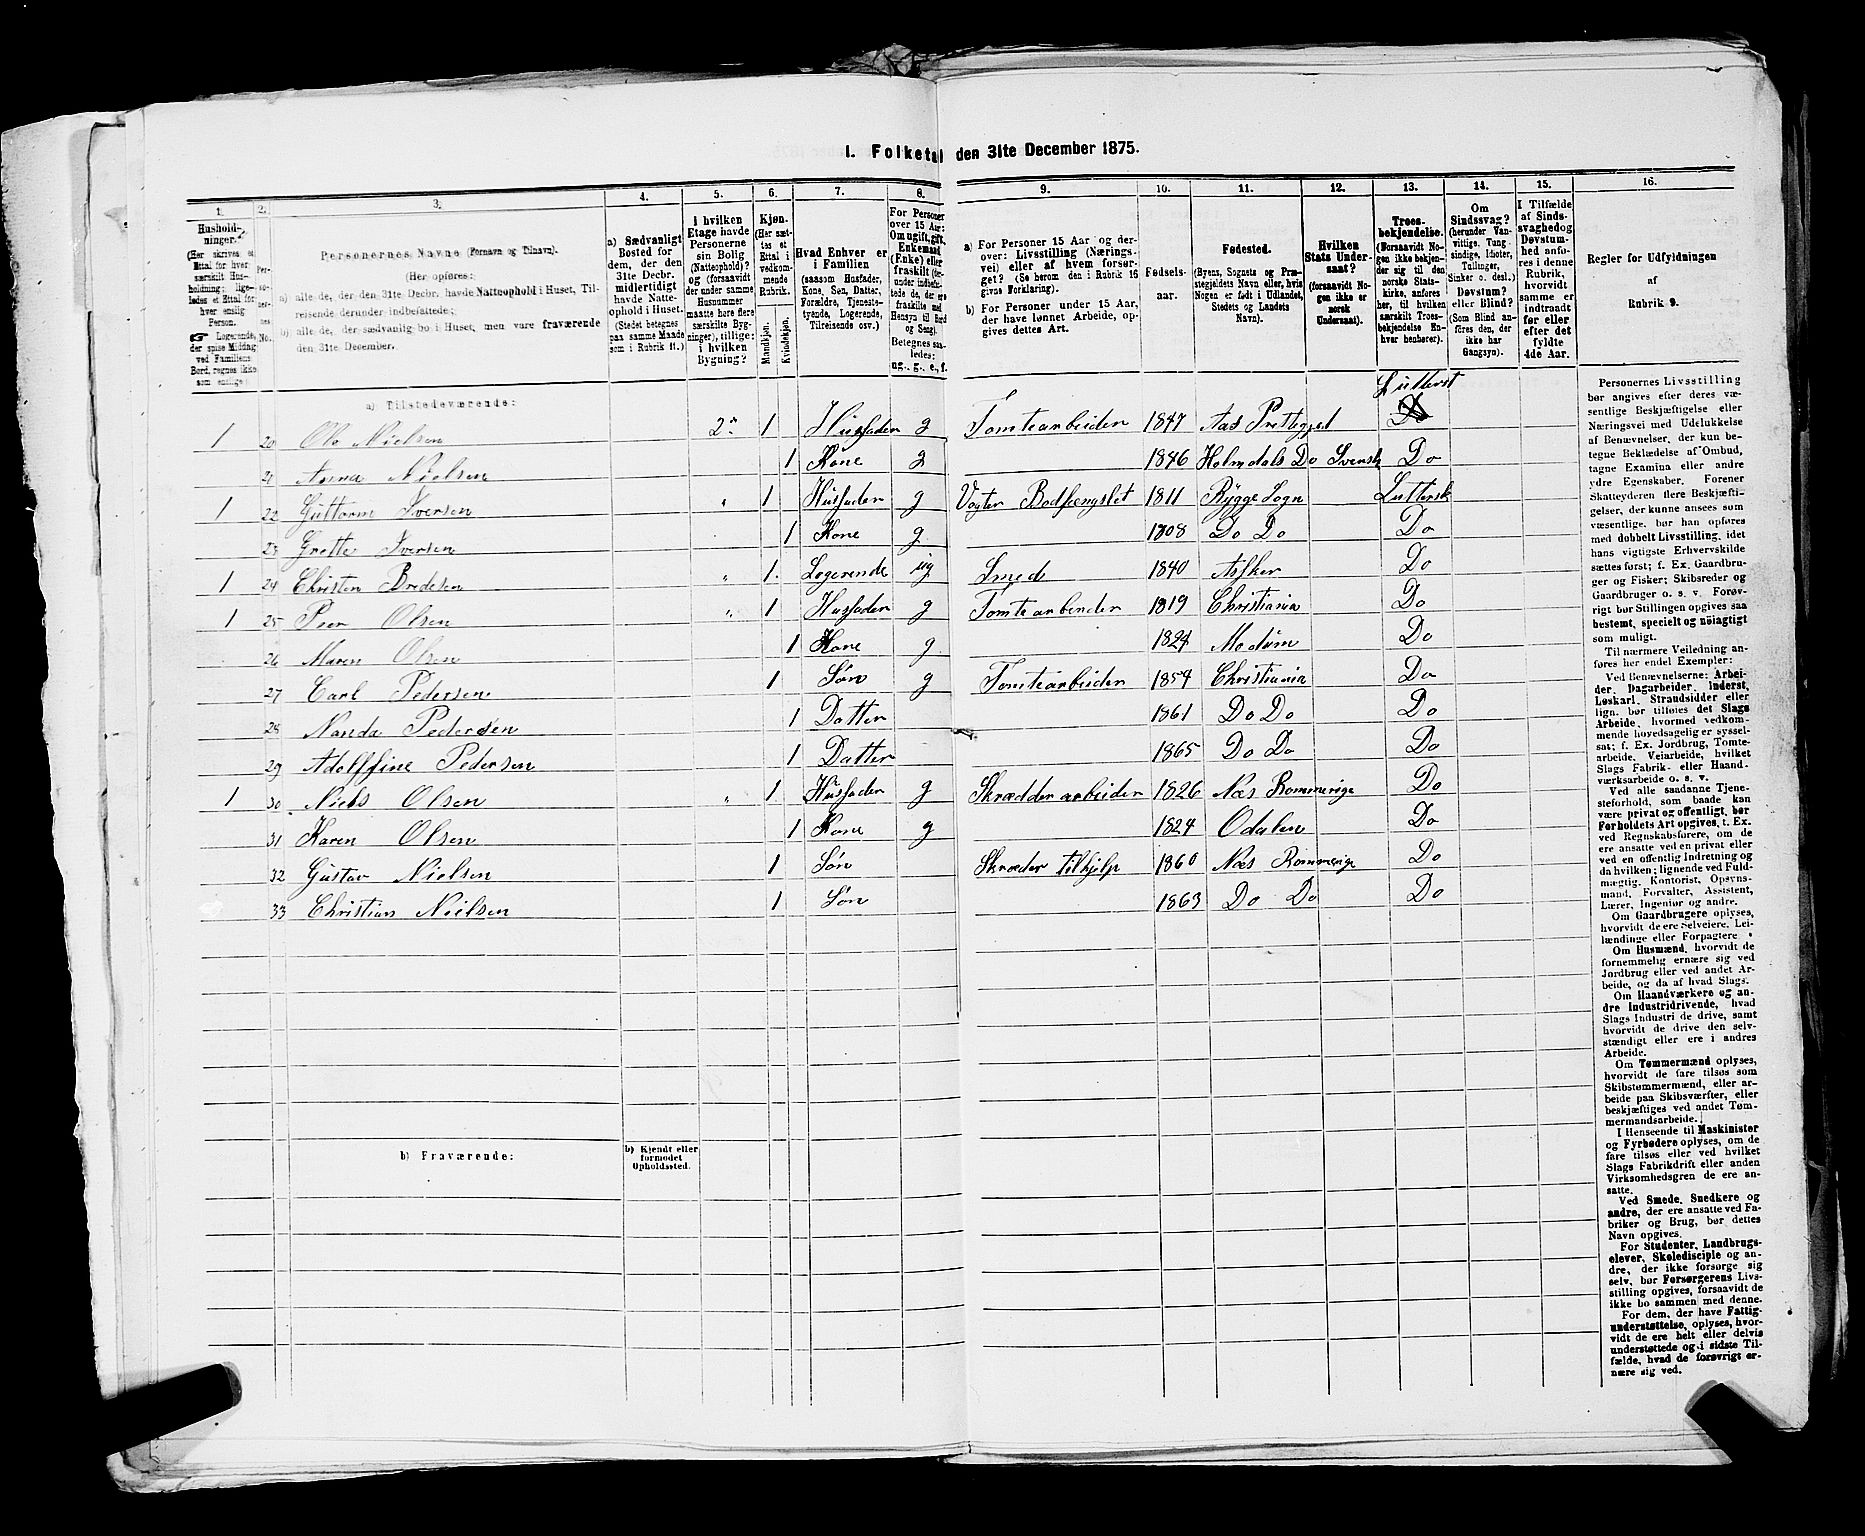 I. Folketal den 31te December 1875.
1. 2. 3. 4. 5. 6. 7. 8. 9. 10. 11. 12. 13. 14. 15. 16.
Hushold-
ninger.
(Her skrives et
Ettal for hver
særskilt Hus-
holdning; lige-
ledes et Ettal for
hver enslig
Person.
☛ Logerende,
der spise Middag
ved Familiens
Bord, regnes ikke
som enslige.)
Per-
so-
ner-
nes
No.
Personernes Navne (Fornavn og Tilnavn).
(Her opføres:
a) alle de, der den 31te Decbr. havde Natteophold i Huset, Til-
reisende derunder indbefattede;
b) alle de, der sædvanlig bo i Huset, men vare fraværende
den 31te December.
a) Sædvanligt
Bosted for
dem, der den
31te Decbr.
midlertidigt
havde Natte-
ophold i Huset.
(Stedet betegnes
paa samme Maade
som i Rubrik 11.)
I hvilken
Etage havde
Personerne
sin Bolig
(Natteophold)?
og (forsaavidt
der under samme
Husnummer
maatte høre flere
særskilte Byg-
ninger), tillige:
i hvilken
Bygning?
Kjøn.
(Her sæt-
tes et
Ettal i
vedkom-
mende
Rubrik.
Mandkjøn.
Kvindekjøn.
Hvad Enhver er
i Familien
(saasom Husfader,
Kone, Søn, Datter,
Forældre, Tjeneste-
tyende, Logerende,
Tilreisende osv.)
For Personer
over 15 Aar:
Om ugift, gift,
Enkemand
(Enke) eller
fraskilt (der-
under indbefat-
tede de, der ere
fraskilte med
Hensyn til Bord
og Seng).
Betegnes saa-
ledes:
ug., g., e., f.
a) For Personer 15 Aar og der-
over: Livsstilling (Nærings-
vei) eller af hvem forsør-
get? (Se herom den i Rubrik 16
givne Forklaring).
b) For Personer under 15 Aar,
der have lønnet Arbeide, op-
gives dettes Art.
Fødsels-
aar.
Fødested.
(Byens, Sognets og Præ-
stegjeldets Navn eller, hvis
Nogen er født i Udlandet,
Stedets og Landets
Navn).
Hvilken
Stats Under-
saat?
(forsaavidt No-
gen ikke er
norsk
Undersaat).
Troes-
bekjendelse.
(Forsaavidt No-
gen ikke bekjen-
der sig til den
norske Stats-
kirke, anføres
her, til hvilken
særskilt Troes-
bekjendelse En-
hver henhører).
Om
Sindssvag?
(herunder Van-
vittige, Tung-
sindige, Idioter,
Tullinger,
Sinker o. desl.)
Døvstum?
eller Blind?
(Som Blind an-
føres den, der
ikke har
Gangsyn).
I Tilfælde
af Sinds-
svaghed og
Døvstum-
hed anfø-
res i denne
Rubrik,
hvorvidt
samme er
indtraadt
før eller
efter det
fyldte
4de Aar.
Regler for Udfyldningen
af
Rubrik 9.
a) Tilstedeværende:
Lutterst
1 20 Ole Nielsen 2den 1 Husfader g Tomtearbeider 1847 Aas Prestegjel
21 Anna Nielsen 1 Kone g 1846 Holmdals Do Svensk Do
1 22 Guttorm Iversen " 1 Husfader g Vogter Bodsfengslet 1811 Rygge Sogn Luttersk
23 Grette Iversen 1 Kone g 1808 Do Do Do
1 24 Christen Bredesen " 1 Logerende ug Smed 1840 Assker Do
1 25 Peer Olsen " 1 Husfader g Tomtearbeider 1819 Christiania Do
26 Maren Olsen 1 Kone g 1824 Modum Do
27 Carl Pedersen 1 Søn g Tomtearbeider 1854 Christiania Do
28 Nanda Pedersen 1 Datter 1861 Do Do Do
29 Adolffine Pedersen 1 Datter 1865 Do Do Do
1 30 Niels Olsen " 1 Husfader g Skrædderarbeider 1826 Næs Rommerige Do
31 Karen Olsen 1 Kone g 1824 Odalen Do
32 Gustav Nielsen 1 Søn Skræder tilhjelp 1860 Næs Rommerige Do
33 Christian Nielsen 1 Søn 1863 Do Do Do
b) Fraværende:
b) Kjendt eller
formodet
Opholdssted.
Personernes Livsstilling
bør angives efter deres væ-
sentlige Beskjæftigelse eller
Næringsvei med Udelukkelse
af Benævnelser, der kun be-
tegne Beklædelse af Ombud,
tagne Examina eller andre
ydre Egenskaber. Forener
Skatteyderen flere Beskjæfti-
gelser, der kunne ansees som
væsentlige, bør han opføres
med dobbelt Livsstilling, idet
hans vigtigste Erhvervskilde
sættes først; f. Ex. Gaardbru-
ger og Fisker; Skibsreder og
Gaardbruger o. s. v. Forøv-
rigt bør Stillingen opgives saa
bestemt, specielt og nøiagtigt
som muligt.
Til nærmere Veiledning an-
føres her endel Exempler:
Ved Benævnelserne: Arbei-
der, Dagarbeider, Inderst,
Løskarl, Strandsidder eller
lign. bør tilføies det Slags
Arbeide, hvormed vedkom-
mende hovedsagelig er syssel-
sat; f. Ex. Jordbrug, Tomte-
arbeide, Veiarbeide, hvilket
Slags Fabrik- eller Haand-
værksarbeide o. s. v.
Ved alle saadanne Tjene-
steforhold, som baade kan
være privat og offentligt, bør
Forholdets Art opgives, t. Ex.
ved Regnskabsførere, om de
ere ansatte ved en privat eller
ved en offentlig Indretning og
da hvilken; lignende ved Fuld-
mægtig, Kontorist, Opsyns-
mand, Forvalter, Assistent,
Lærer, Ingeniør og andre.
Om Gaardbrugere oplyses,
hvorvidt de ere Selveiere, Lei-
lændinge eller Forpagtere.
Om Husmænd, hvorvidt de
fornemmelig ernære sig ved
Jordbrug eller ved andet Ar-
beide, og da af hvad Slags.
Om Haandværkere og an-
dre Industridrivende, hvad
Slags Industri de drive, samt
hvorvidt de drive den selv-
stændigt eller ere i andres
Arbeide.
Om Tømmermænd oplyses,
hvorvidt de fare tilsøs som
Skibstømmermænd, eller ar-
beide paa Skibsværfter, eller
beskjæftiges ved andet Tøm-
mermandsarbeide.
I Henseende til Maskinister
og Fyrbødere oplyses, om de
fare tilsøs eller ved hvilket
Slags Fabrikdrift eller anden
Virksomhedsgren de ere an-
satte.
Ved Smede, Snedkere og
andre, der ere ansatte ved Fa-
briker og Brug, bør dettes
Navn opgives.
For Studenter, Landbrugs-
elever, Skoledisciple og an-
dre, der ikke forsørge sig
selv, bør Forsørgerens Livs-
stilling opgives, forsaavidt de
ikke bo sammen med denne.
For dem, der have Fattig-
understøttelse, oplyses, hvor-
vidt de ere helt eller delvis
understøttede og i sidste Til-
fælde, hvad de forøvrigt er-
nære sig ved.